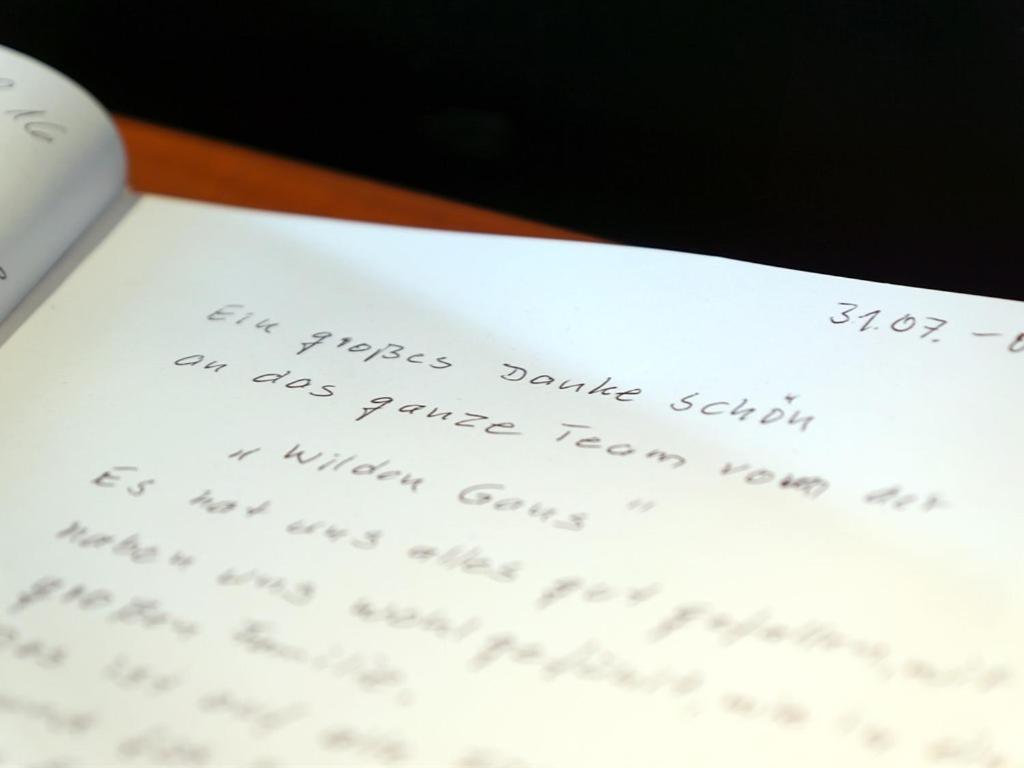 16
31.07. -
Ein großes Danke schön
an das ganze Team vom der
"Wilden Gans"
Es hat uns alles gut gefallen, wir
haben uns wohl gefühlt, wie in
großen Familie.
Das ist